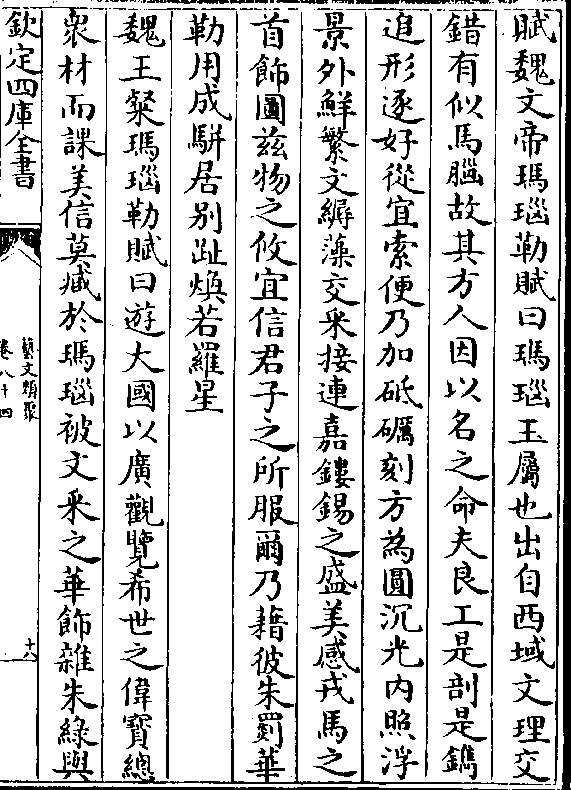 賦魏文帝瑪瑙勒賦曰瑪瑙玉屬也出自西域文理交
錯有似馬腦故其方人因以名之命夫良工是剖是鐫
追形逐好從宜索便乃加砥礪刻方為圓沉光内照浮
景外鮮繁文縟藻交采接連嘉鏤錫之盛美感戎馬之
首飾圖兹物之攸宜信君子之所服爾乃藉彼朱罽華
勒用成駢居别趾煥若羅星
魏王粲瑪瑙勒賦曰遊大國以廣觀覽希世之偉寳總
衆材而課美信莫臧於瑪瑙被文采之華飾雜朱綠與
欽定四庫全書
藝文類聚
卷八十四
十六